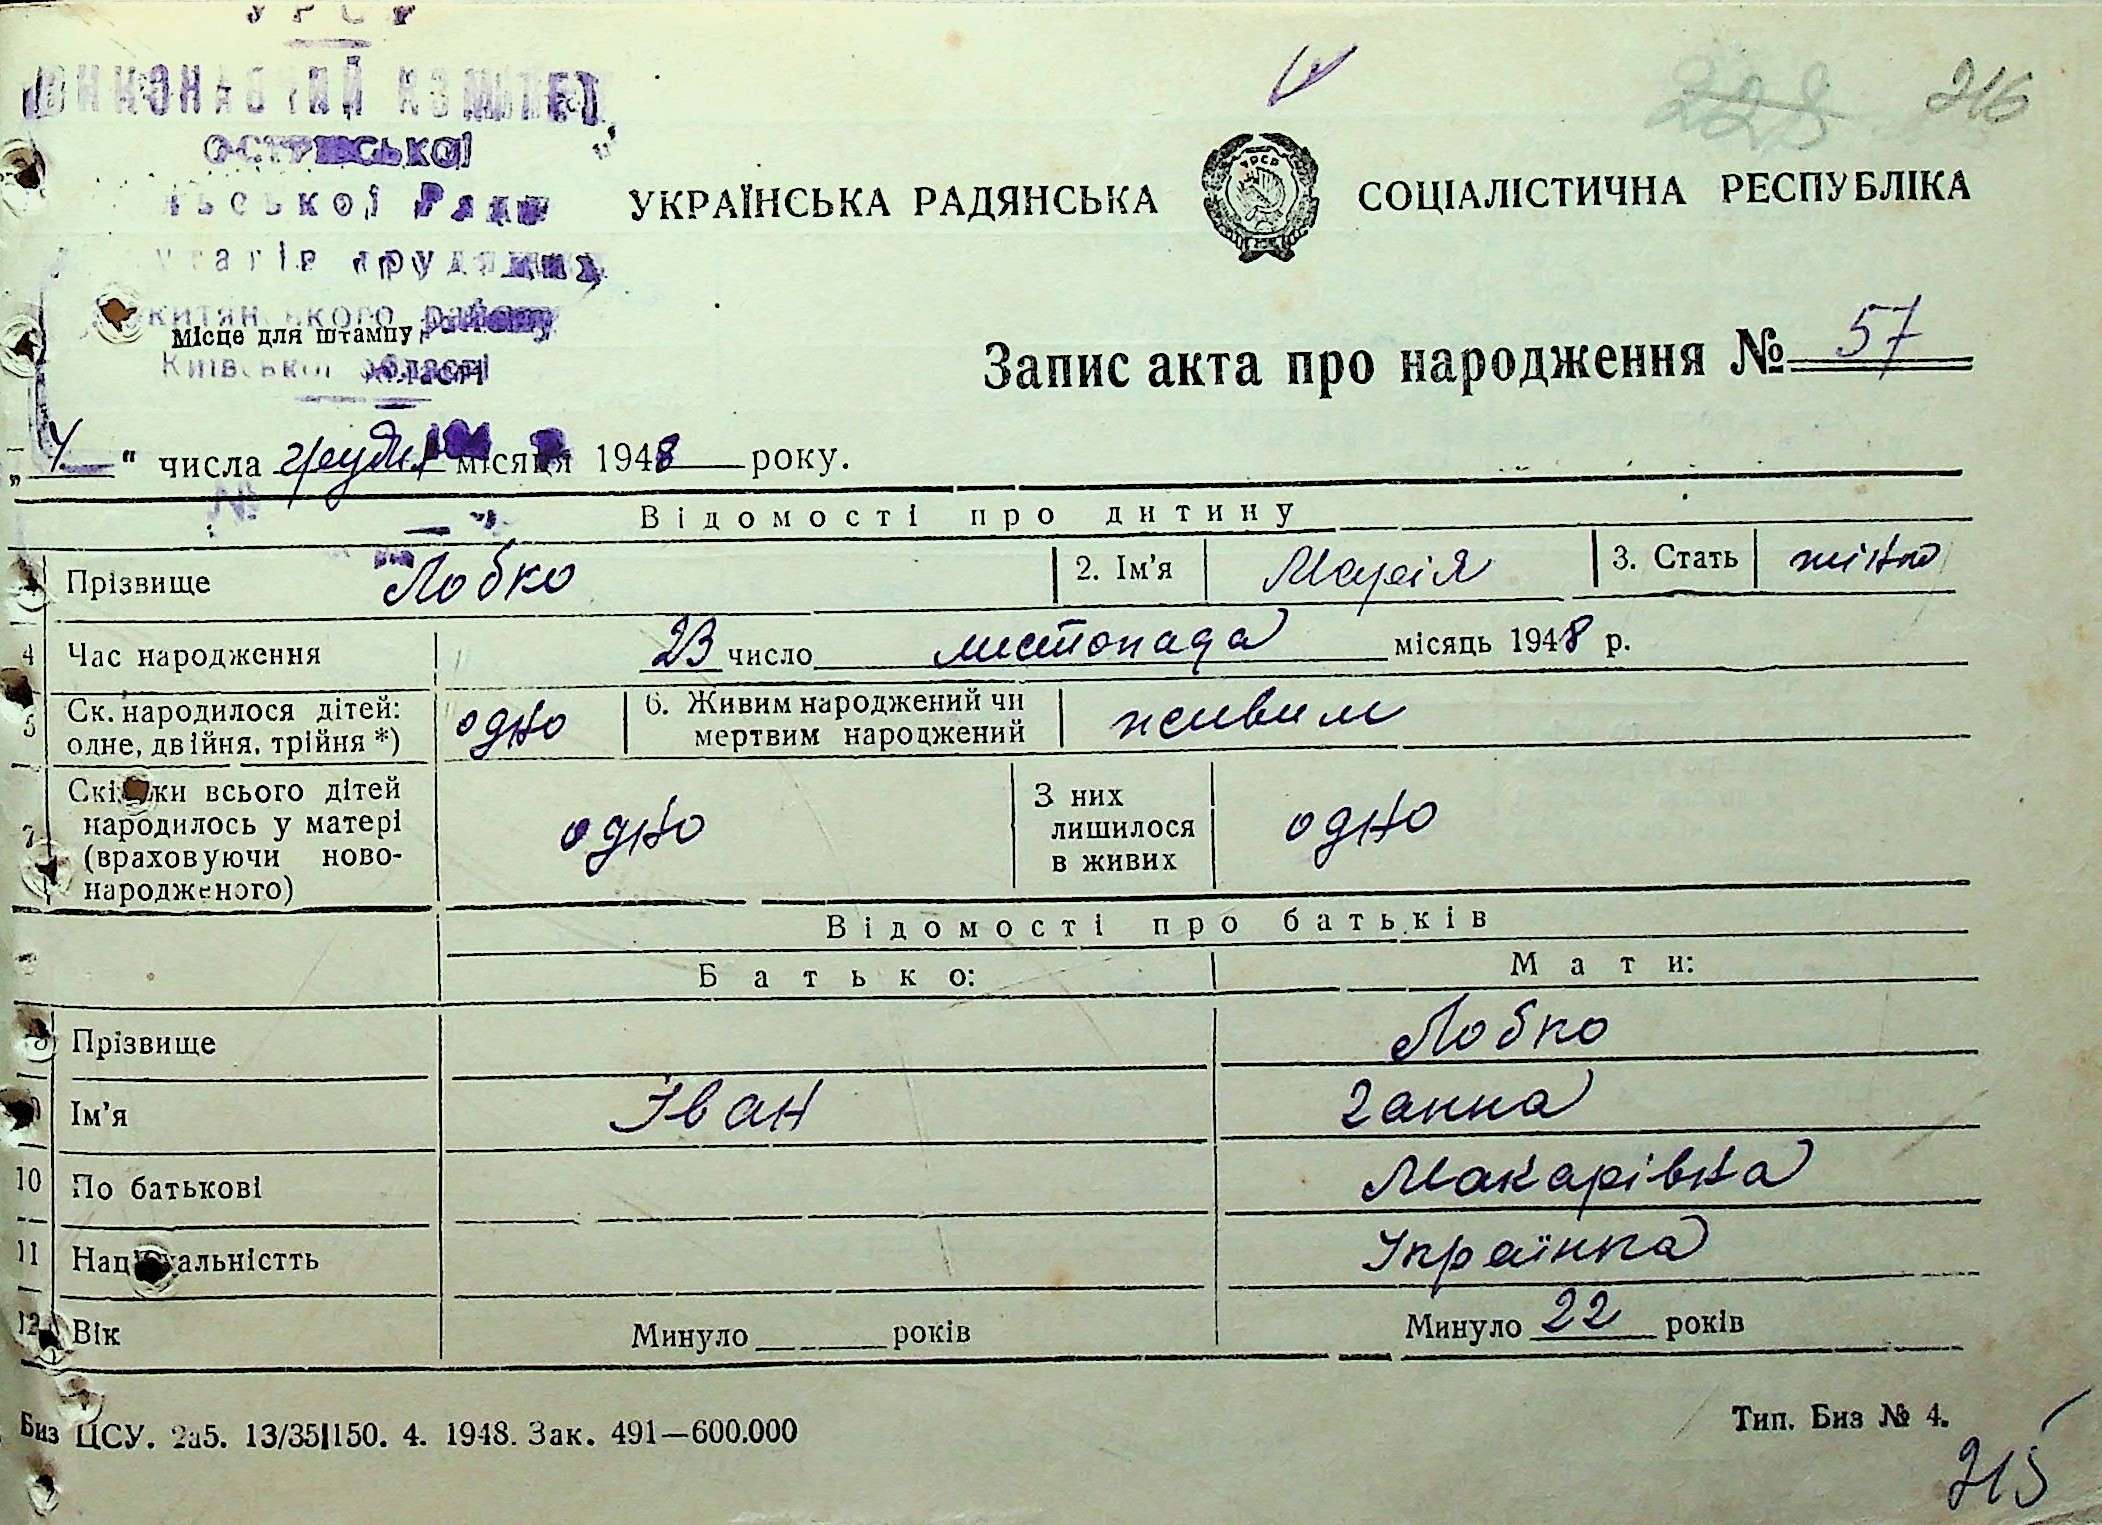 УРСР
ВИКОНАВЧИЙ КОМІТЕТ
ОСТРІВСЬКОЇ
сільської Ради
депутатів трудящих
Рокитянського району
Місце для штампу
Київської області
216
УКРАЇНСЬКА РАДЯНСЬКА СОЦІАЛІСТИЧНА РЕСПУБЛІКА
Запис акта про народження № 57
„ 4 “ числа грудня місяця 1948 року.
Відомості про дитину
Прізвище Лобко 2. Ім’я Марія 3. Стать жіно
4 Час народження 23 число листопада місяць 1948 р.
5 Ск. народилося дітей: одне, двійня, трійня *) одно 6. Живим народжений чи мертвим народжений живим
7 Скільки всього дітей народилось у матері (враховуючи ново-народженого) одно З них лишилося в живих одно
Відомості про батьків
Батько: Мати:
8 Прізвище Лобко
9 Ім’я Іван Ганна
10 По батькові Макарівна
11 Національністть Українка
12 Вік Минуло ___ років Минуло 22 років
Биз ЦСУ. 2а5. 13/35|150. 4. 1948. Зак. 491—600.000 Тип. Биз № 4.
215